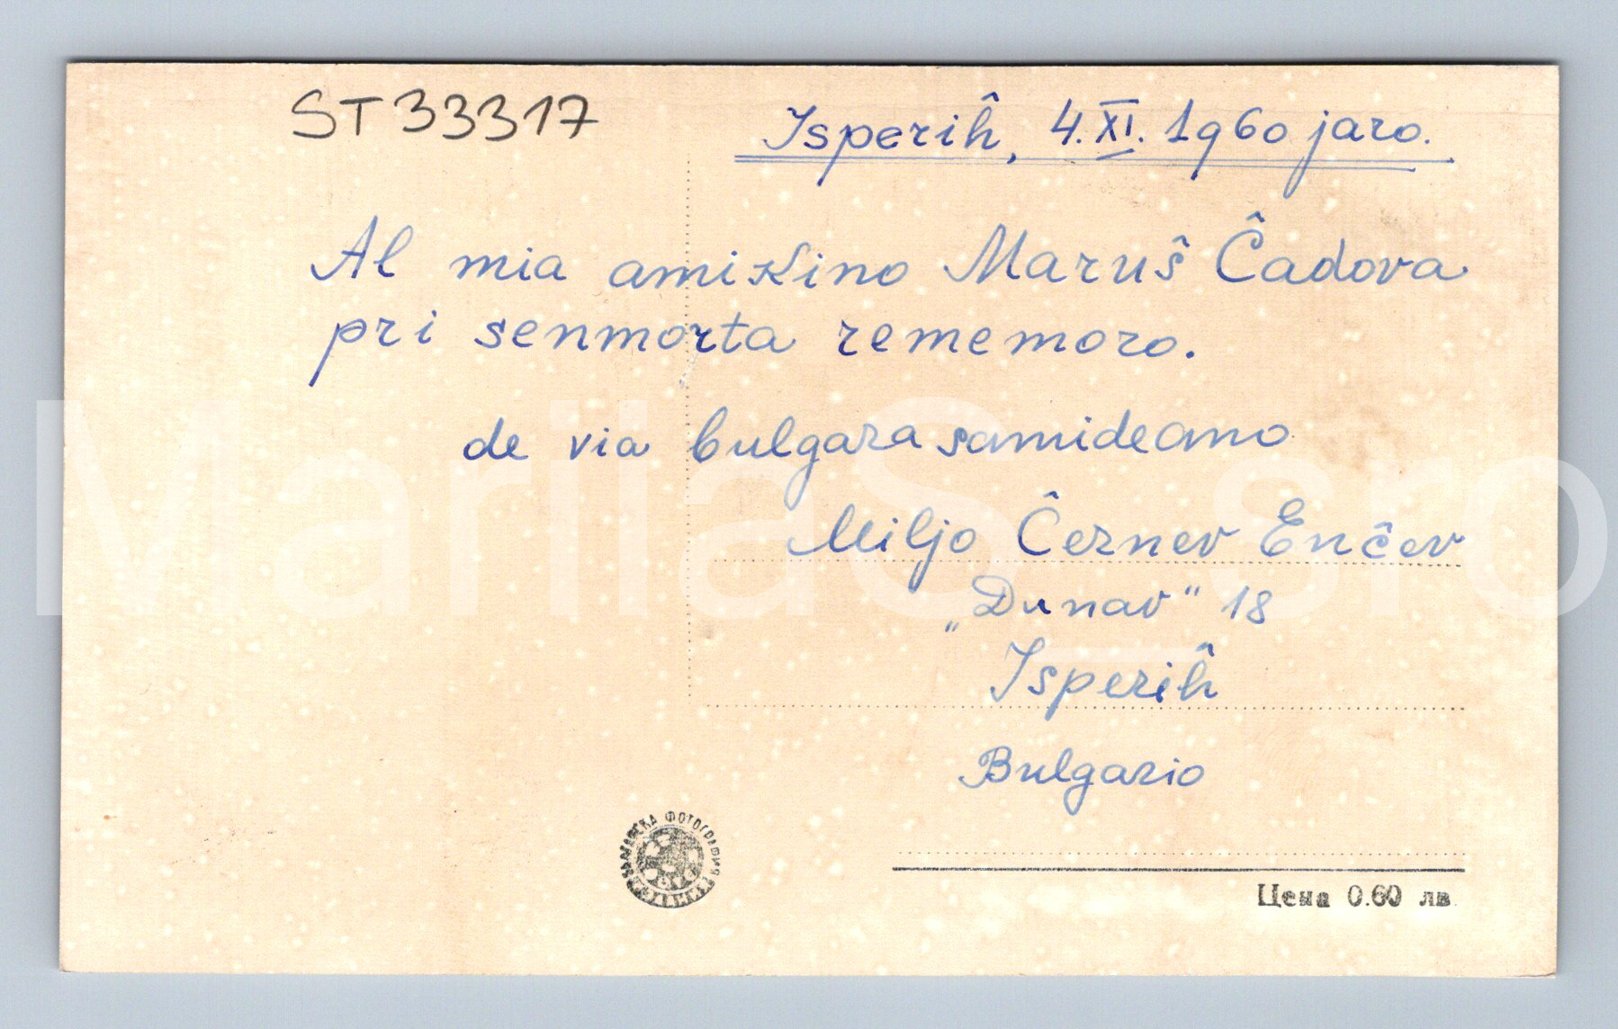 ST33317
Isperiĥ, 4.XI.1960 jaro.
Al mia amikino Maruŝ Ĉadova
pri senmorta rememoro.
de via bulgara samideano
Miljo Ĉernev Enĉev
„Dunav" 18
Isperiĥ
Bulgario
Цена 0.60 лв
MariiaS_sro